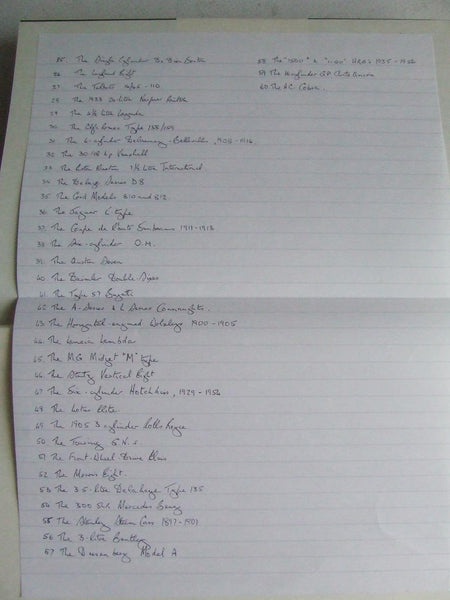 25. The Single Cylinder De Dion Bouton
26 The Leyland Eight
27 The Talbots 14/45 - 110
28 The 1933 Maserati
29 The 4½ litre Lagonda
30 The Alfa Romeo Type 158/159
31 The 6-cylinder Delaunay-Belleville, 1908-1916
32 The 30/98 hp Vauxhall
33 The Aston Martin 1½ Litre International
34 The Delage Series D8
35 The Cord Models 810 and 812
36. The Jaguar C type
37. The Coupe de l'Auto Sunbeams 1911-1913
38. The Six-cylinder O.M.
39. The Austin Seven
40. The Daimler Double-Sixes
41 The Type 57 Bugatti
42. The A-Series & L Series Connaughts.
43. The Horizontal-engined Wolseleys 1900-1905
44. The Lancia Lambda
45. The MG Midget "M" type
46. The Stutz Vertical Eight
47 The Six-cylinder Hotchkiss, 1929-1954
48 The Lotus Elite.
49. The 1905 3-cylinder Rolls Royce
50 The Touring G.N.s.
51 The Front-Wheel Drive Alvis
52 The Morris Eight.
53 The 3.5-litre Delahaye Type 135
54 The 300 SLR Mercedes Benz
55 The Stanley Steam Cars 1897-1907
56 The 3-litre Bentley
57 The Duesenberg Model A
58 The "500" & "1100" 1935-1956
59 The G.P. Austro
60 The AC Cobra.